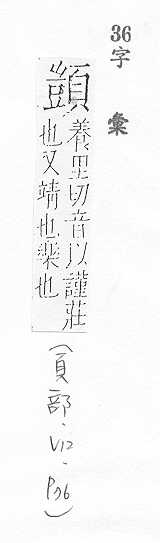 36
字彙
顗
養里切音以謹莊
也又靖也樂也
(頁部·V12·P96)